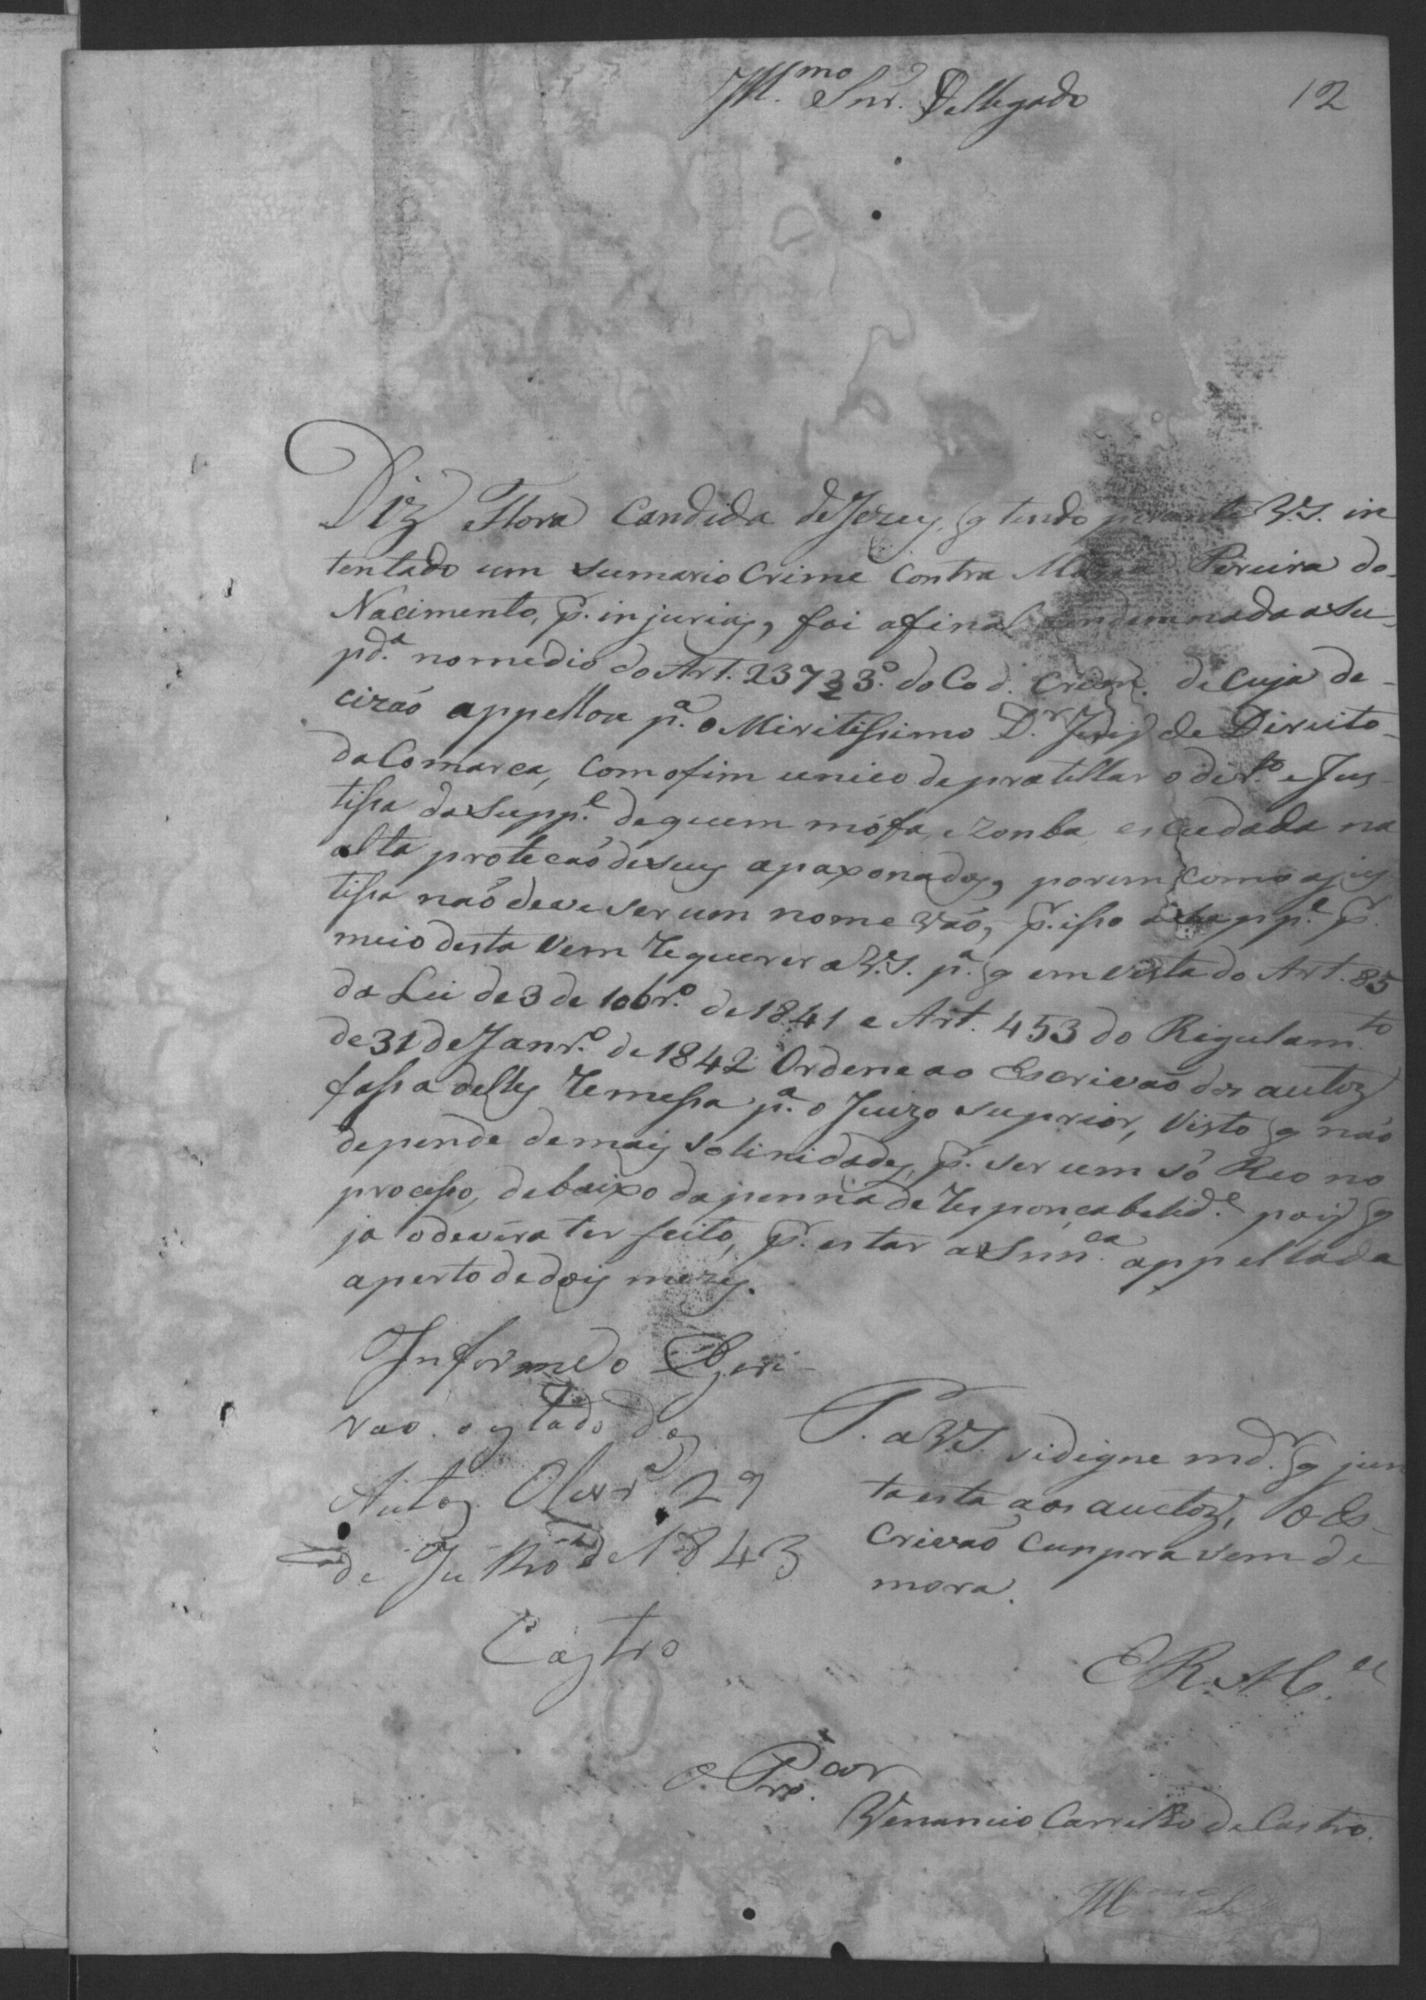 Ill.mo Snr. Dellegado
12
Diz Flora Candida de Jezus, q tendo perante V.S. in
tentado um sumario Crime Contra Maria Pereira do
Nacimento, pr. injurias, foi afinal condemnada a Su-
pda. no medio do Art. 237 § 3º. do Cod. Crim. de cuja de-
cizaõ appellou pª. o Miritissimo Dr. Juiz de Direito
da Comarca, com o fim unico de pretellar o dirto. e Jus-
tissa da Suppe. de quem mófa, e zonba, escudada na
alta protecaõ de seus apaxonados, porem como a jus-
tissa naõ deve ser um nome vaõ, pr. isso a Suppe. pr.
meio desta vem requerer a V.S. pª. q em vista do Art. 85
da Lei de 3 de 10br.º de 1841 e Art. 453 do Regulamto.
de 31 de Janr.º de 1842 Ordene ao Escrivaõ dos autos
fassa delles remessa pª. o Juizo suprior, visto q naõ
depende de mais solinidades, pr. ser um só Reo no
processo, debaixo da penna de responçabelide. pois q
ja o devera ter feito, pr. estar a Snnca. appellada
a perto de dois mezes.
Informe o Escri-
vao o estado dos
Autos. Olivrª 29
de Julho de 1843
Castro
P. a V.S. si digne mdr. q jun
ta esta aos auctos, o Es-
crivaõ cunpra sem de
mora.
E R Mce.
o Procor.
Venancio Carrilho de Castro.